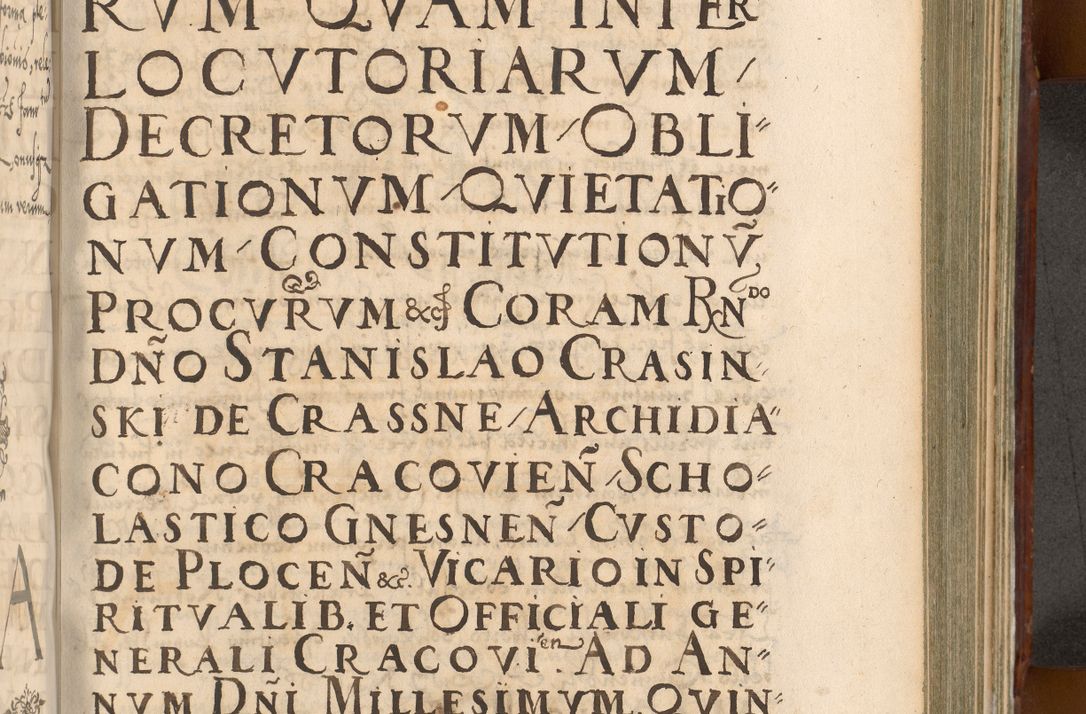 RVM QVAM INTER
LOCVTORIARVM /
DECRETORVM / OBLI⸗
GATIONVM / QVIETATIO⸗
NVM / CONSTITVTIONŨ
PROCVRVM &c CORAM RNDO
DÑO STANISLAO CRASIN⸗
SKI DE CRASSNE / ARCHIDIA⸗
CONO CRACOVIEÑ / SCHO⸗
LASTICO GNESNEÑ / CVSTO⸗
DE PLOCEÑ &c. VICARIO IN SPI⸗
RITVALIB. ET OFFICIALI GE⸗
NERALI CRACOVIen. AD AN⸗
NVM DÑI MILLESIMVM. QVIN⸗